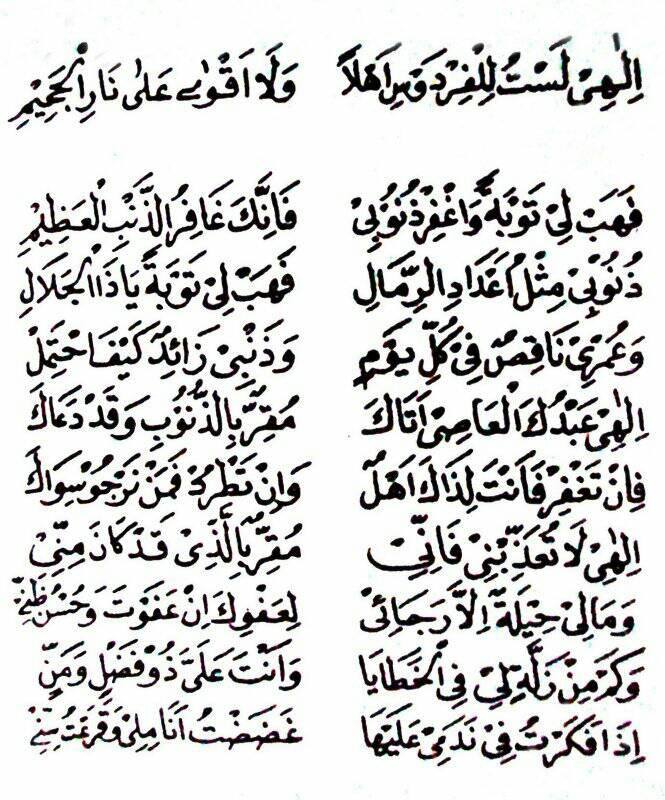 اِلٰهِيْ لَسْتُ لِلْفِرْدَوْسِ اَهْلاً وَلَا اَقْوٰى عَلٰى نَارِ الْجَحِيْمِ
فَهَبْ لِيْ تَوْبَةً وَاغْفِرْ ذُنُوْبِيْ فَاِنَّكَ غَافِرُ الذَّنْبِ الْعَظِيْمِ
ذُنُوْبِيْ مِثْلُ اَعْدَادِ الرِّمَالِ فَهَبْ لِيْ تَوْبَةً يَاذَا الْجَلَالِ
وَعُمْرِيْ نَاقِصٌ فِيْ كُلِّ يَوْمٍ وَذَنْبِيْ زَائِدٌ كَيْفَ احْتِمِلْ
اِلٰهِيْ عَبْدُكَ الْعَاصِيْ اَتَاكَ مُقِرًّ بِالذُّنُوْبِ وَقَدْ دَعَاكَ
فَاِنْ تَغْفِرْ فَاَنْتَ لِذَاكَ اَهْلٌ وَاِنْ تَطْرُدْ فَمَنْ نَرْجُوْ سِوَاكَ
اِلٰهِيْ لَا تُعَذِّبْنِيْ فَاِنِّيْ مُقِرٌّ بِالَّذِيْ قَدْ كَانَ مِنِّيْ
وَمَالِيْ حِيْلَةٌ اِلاَّ رَجَائِيْ لِعَفْوِكَ اِنْ عَفَوْتَ وَحُسْنُ ظَنِّيْ
وَكَمْ مِنْ زَلَّةٍ لِيْ فِى الْخَطَايَا وَاَنْتَ عَلَيَّ ذُوْفَضْلٍ وَمَنٍّ
اِذَا فَكَرْتُ فِيْ نَدَمِيْ عَلَيْهَا غَضَضْتُ اَنَامِلِيْ وَقَرَعْتُ سِنِّيْ